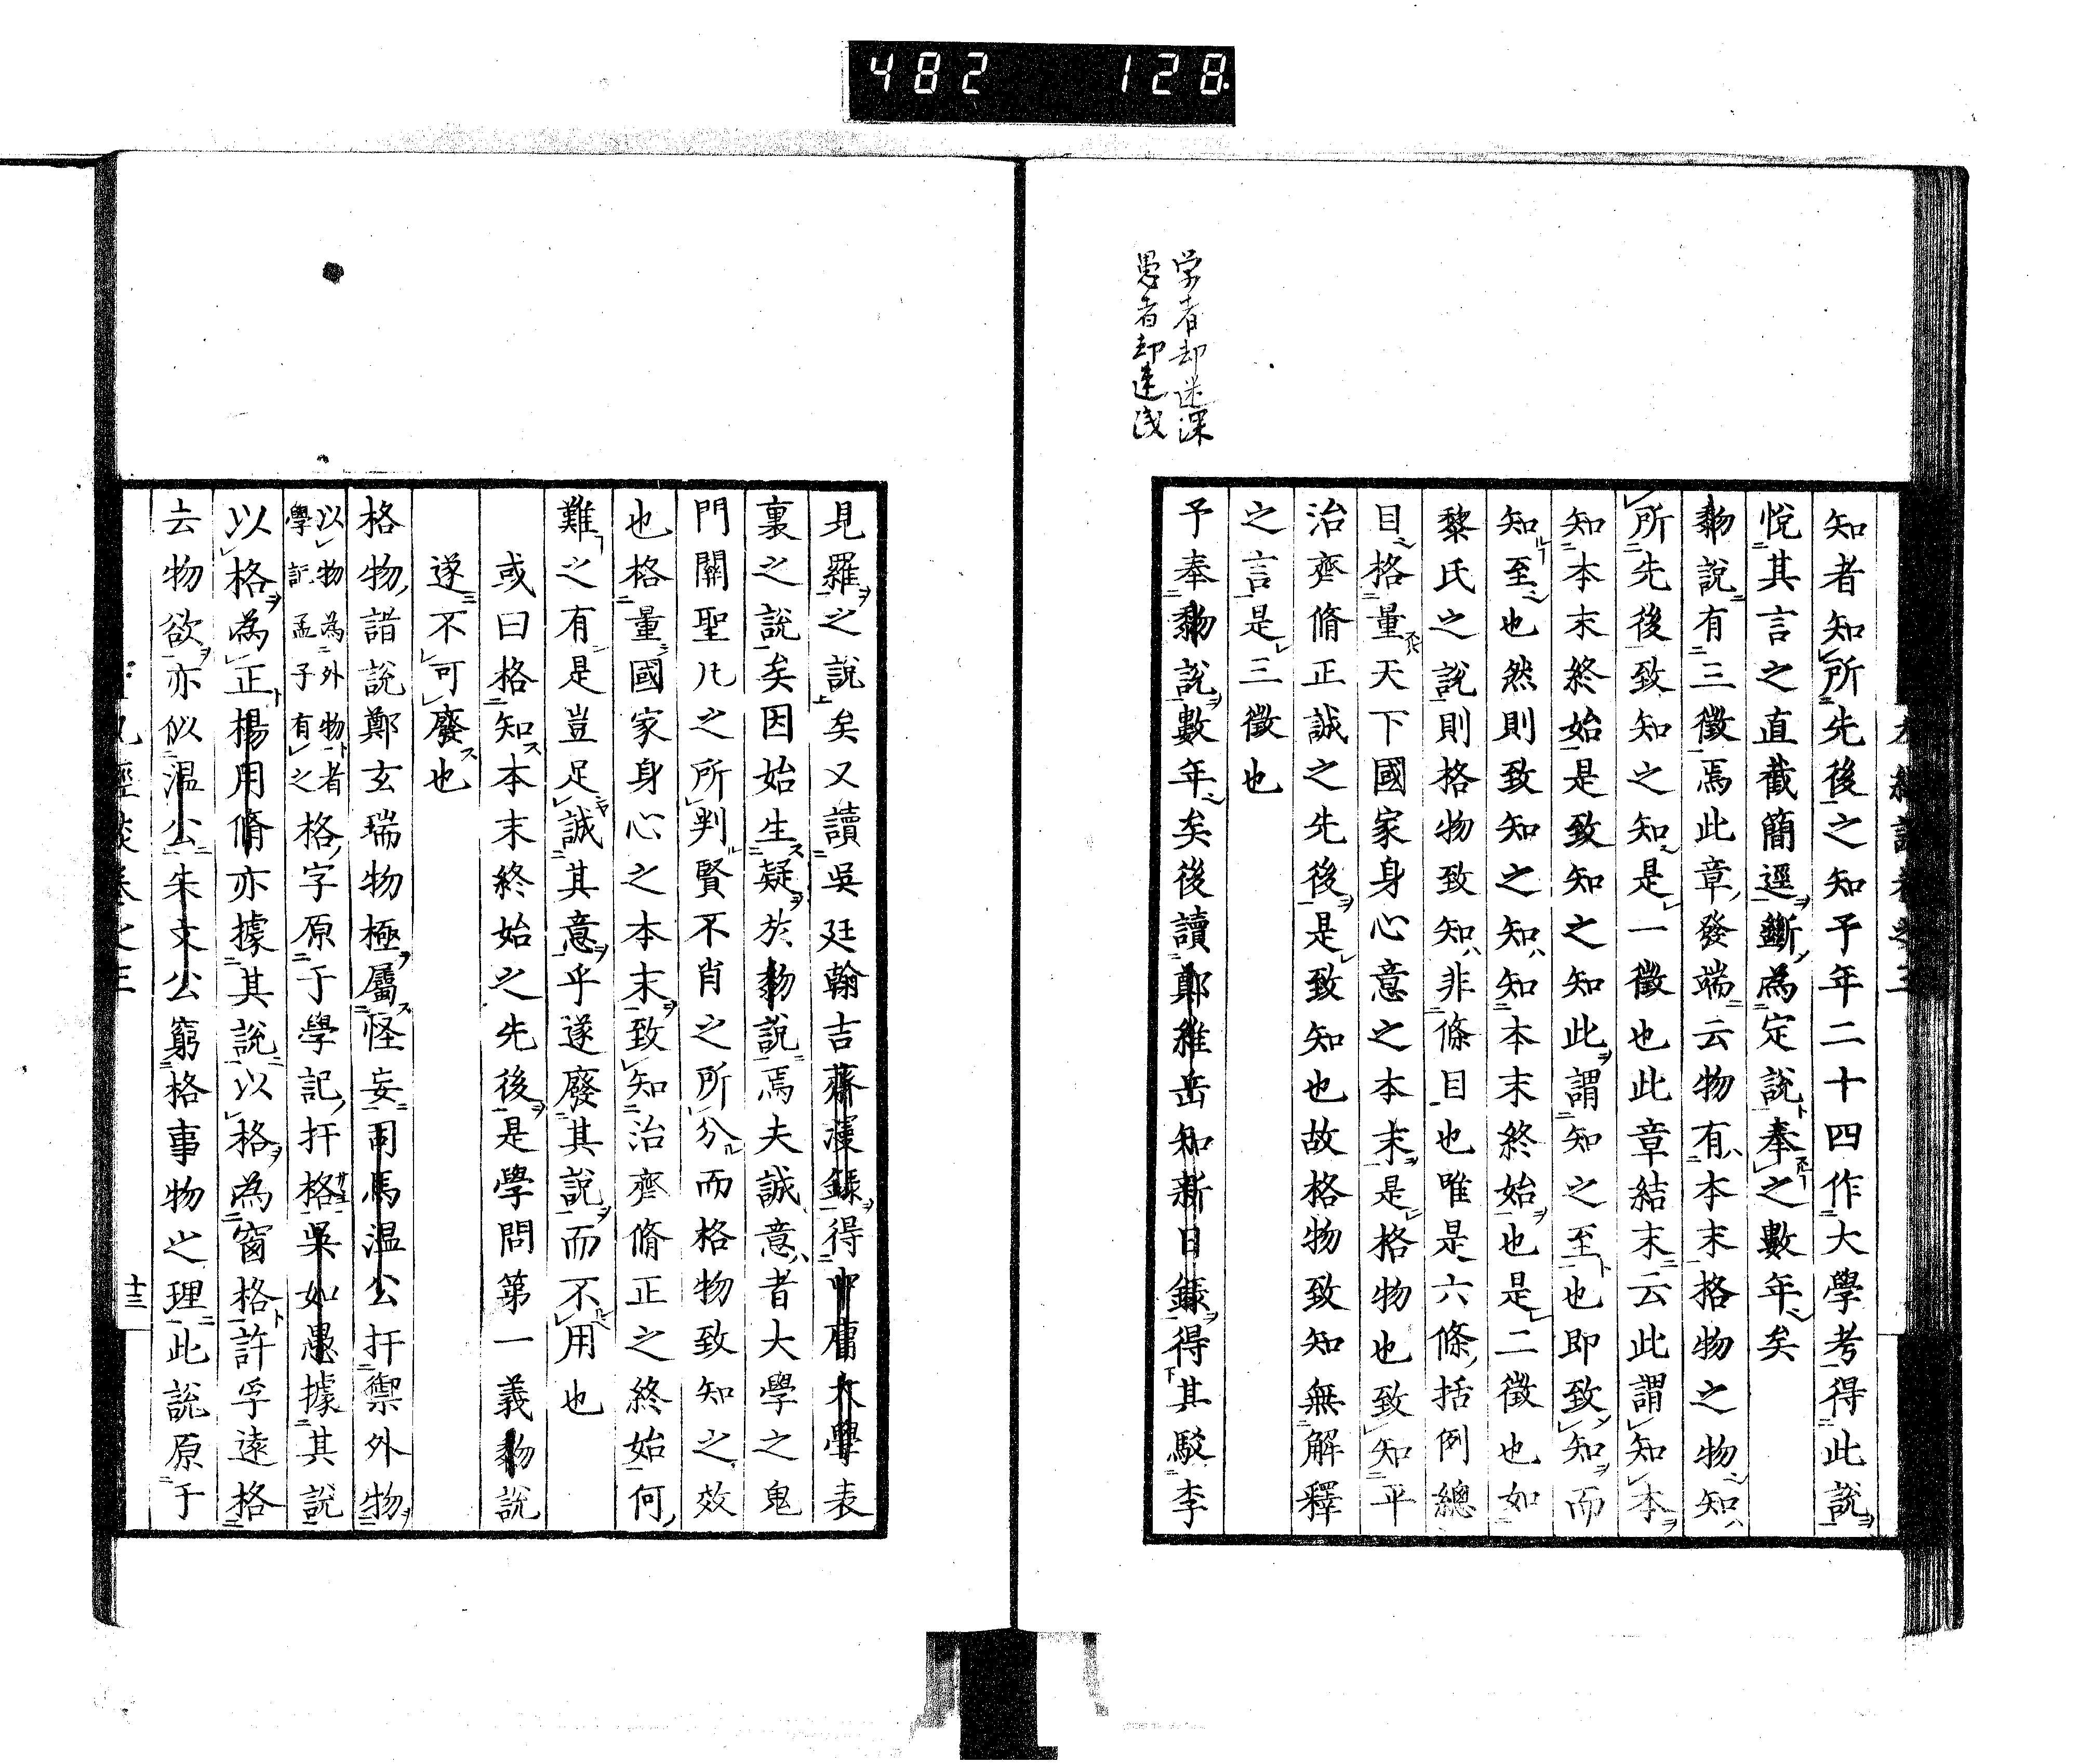 482 128
学者却迷深
愚者却達浅
知者知所先後之知予年二十四作大學考得此說
悅其言之直截簡逕斷為定說奉之數年矣
黎物說有三徵焉此章發端云物有本末格物之物知
所先後致知之知是一徵也此章結末云此謂知本
知本末終始是致知之知此謂知之至也即致知而
知至也然則致知之知知本末終始也是二徵也如
黎氏之說則格物致知非條目也唯是六條括例總
目格量天下國家身心意之本末是格物也致知平
治齊脩正誠之先後是致知也故格物致知無解釋
之言是三徵也
予奉黎物說數年矣後讀鄭維岳知新日錄得其駁李
見羅之說矣又讀吳廷翰吉齋漫錄得中庸大學表
裏之說矣因始生疑於黎物說焉夫誠意者大學之鬼
門關聖凡之所判賢不肖之所分而格物致知之效
也格量國家身心之本末致知治齊脩正之終始何
難之有是豈足誠其意乎遂廢其說而不用也
或曰格知本末終始之先後是學問第一義黎物說
遂不可廢也
格物諸說鄭玄瑞物極屬怪妄司馬温公扞禦外物
以物為外物者
學記孟子有之
格字原于學記扞格吳如愚據其說
以格為正楊用脩亦據其說以格為窗格許孚遠格
去物欲亦似温公朱文公窮格事物之理此說原于
十三